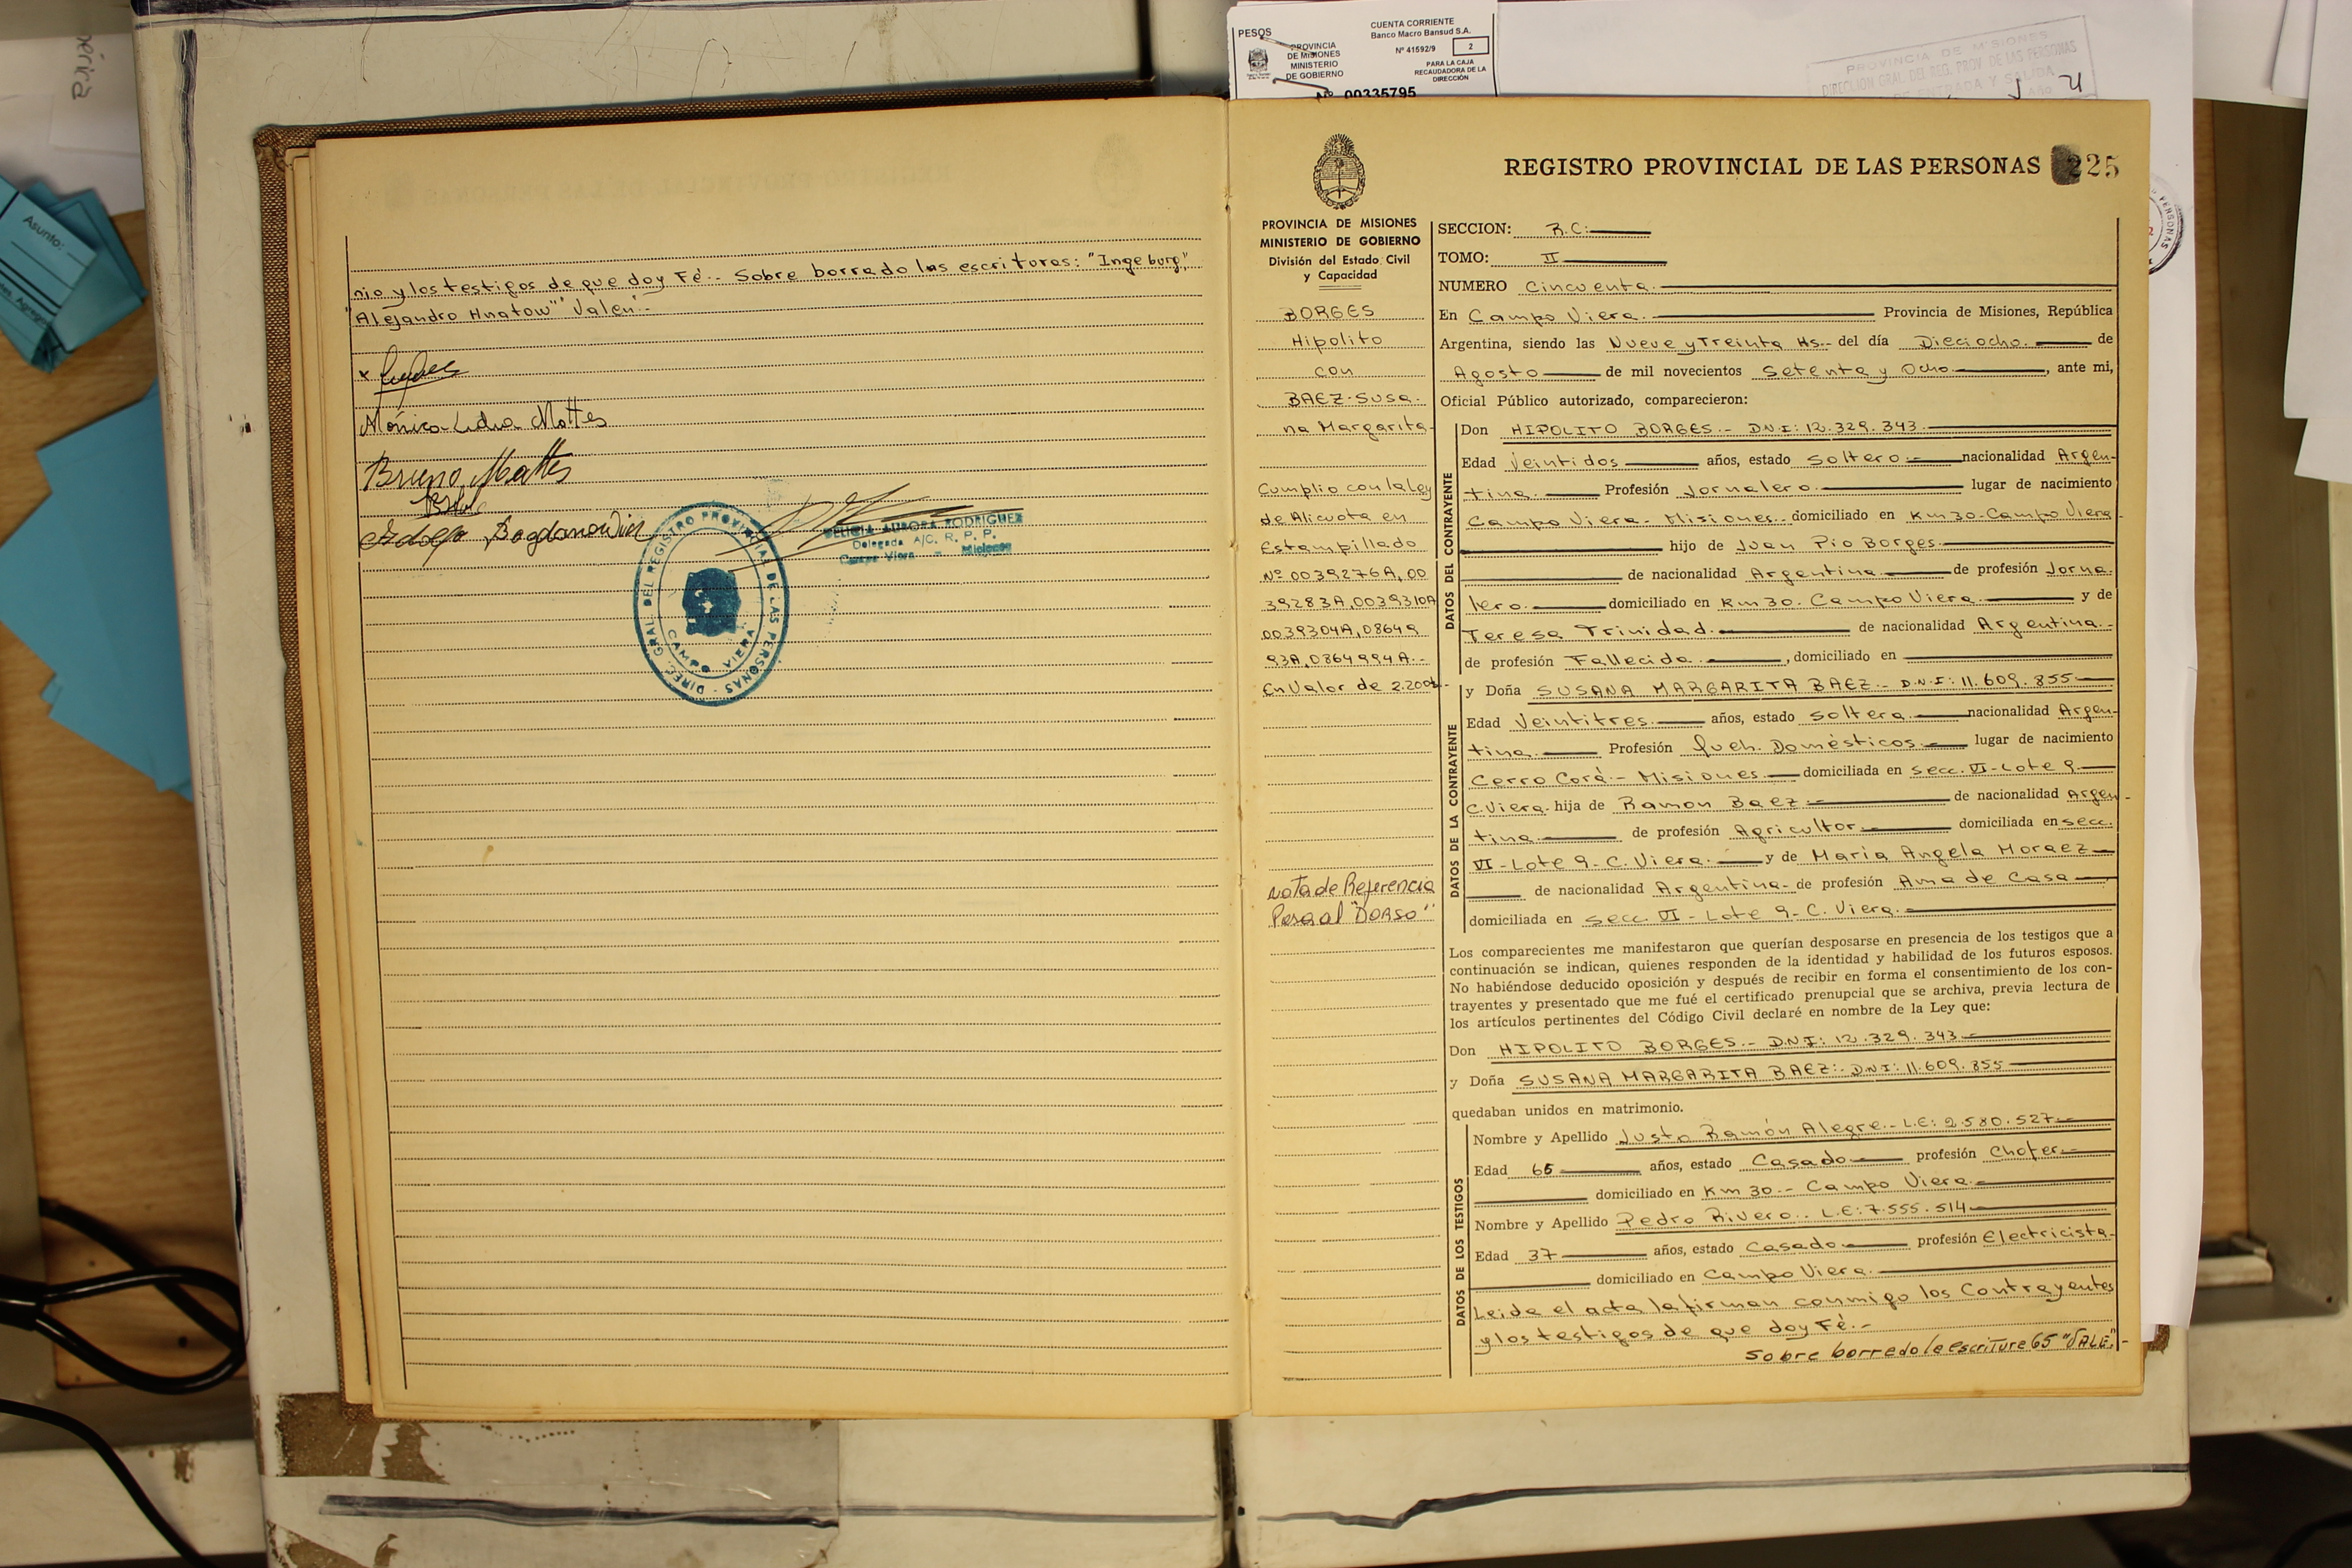 Asunto:
PESOS
CUENTA CORRIENTE
Banco Macro Bansud S.A.
PROVINCIA
DE MISIONES
MINISTERIO
DE GOBIERNO
Nº 41592/9
2
PARA LA CAJA
RECAUDADORA DE LA
DIRECCIÓN
Nº 00335795
PROVINCIA DE MISIONES
DIRECCION GRAL. DEL REG. PROV. DE LAS PERSONAS
DE ENTRADA Y SALIDA
nio y los testigos de que doy Fé.- Sobre borrado las escrituras: "Ingeburg",
"Alejandro Hnatow" "Valen".-
x
Mónica Lidia Mattes
Bruno Mattes
Adolfo Bogdanowicz
DIREC. GRAL. DEL REGISTRO PROVINCIAL DE LAS PERSONAS
CAMPO VIERA
DELICIA AURORA RODRIGUEZ
Delegada A/C. R. P. P.
Campo Viera - Misiones
REGISTRO PROVINCIAL DE LAS PERSONAS 225
PROVINCIA DE MISIONES
MINISTERIO DE GOBIERNO
División del Estado Civil
y Capacidad
BORGES
Hipolito
con
BAEZ-Susa-
na Margarita-
Cumplio con la Ley
de Alicuota en
Estampillado
Nº 0039276A, 00
39283A, 0039310A
0039304A, 08649
93A, 0864994A.-
En Valor de 2.200
nota de Referencia
Pasa al "DORSO"
SECCION: R.C:
TOMO: II
NUMERO Cincuenta.
En Campo Viera. Provincia de Misiones, República
Argentina, siendo las Nueve y Treinta Hs.- del día Dieciocho. de
Agosto de mil novecientos Setenta y Ocho , ante mi,
Oficial Público autorizado, comparecieron:
DATOS DEL CONTRAYENTE
Don HIPOLITO BORGES.- D.N.I: 12.329.343.
Edad Veintidos años, estado Soltero.- nacionalidad Argen-
tina. Profesión Jornalero. lugar de nacimiento
Campo Viera- Misiones.. domiciliado en Km 30-Campo Viera
hijo de Juan Pio Borges.
de nacionalidad Argentina. de profesión Jorna-
lero. domiciliado en Km 30. Campo Viera. y de
Teresa Trinidad. de nacionalidad Argentina.-
de profesión Fallecida. , domiciliado en
DATOS DE LA CONTRAYENTE
y Doña SUSANA MARGARITA BAEZ.- D.N.I: 11.609.855
Edad Veintitres. años, estado Soltera. nacionalidad Argen-
tina. Profesión Queh. Domésticos. lugar de nacimiento
Cerro Corá.- Misiones. domiciliada en Secc. VI-Lote 9.
C.Viera. hija de Ramon Baez. de nacionalidad Argen-
tina. de profesión Agricultor. domiciliada en Secc.
VI-Lote 9-C. Viera. y de Maria Angela Moraez
de nacionalidad Argentina- de profesión Ama de Casa
domiciliada en Secc. VI-Lote 9-C. Viera.
Los comparecientes me manifestaron que querían desposarse en presencia de los testigos que a
continuación se indican, quienes responden de la identidad y habilidad de los futuros esposos.
No habiéndose deducido oposición y después de recibir en forma el consentimiento de los con-
trayentes y presentado que me fué el certificado prenupcial que se archiva, previa lectura de
los artículos pertinentes del Código Civil declaré en nombre de la Ley que:
Don HIPOLITO BORGES.- D.N.I: 12.329.343
y Doña SUSANA MARGARITA BAEZ:. D.N.I: 11.609.855
quedaban unidos en matrimonio.
DATOS DE LOS TESTIGOS
Nombre y Apellido Justo Ramón Alegre.- L.E: 2.580.527
Edad 65 años, estado Casado profesión Chofer.
domiciliado en Km 30.- Campo Viera.
Nombre y Apellido Pedro Rivero.. L.E: 7.555.514
Edad 37 años, estado Casado profesión Electricista-
domiciliado en Campo Viera.
Leida el acta la firman conmigo los Contrayentes
y los testigos de que doy Fé.-
Sobre borrado la escritura 65 "VALE"